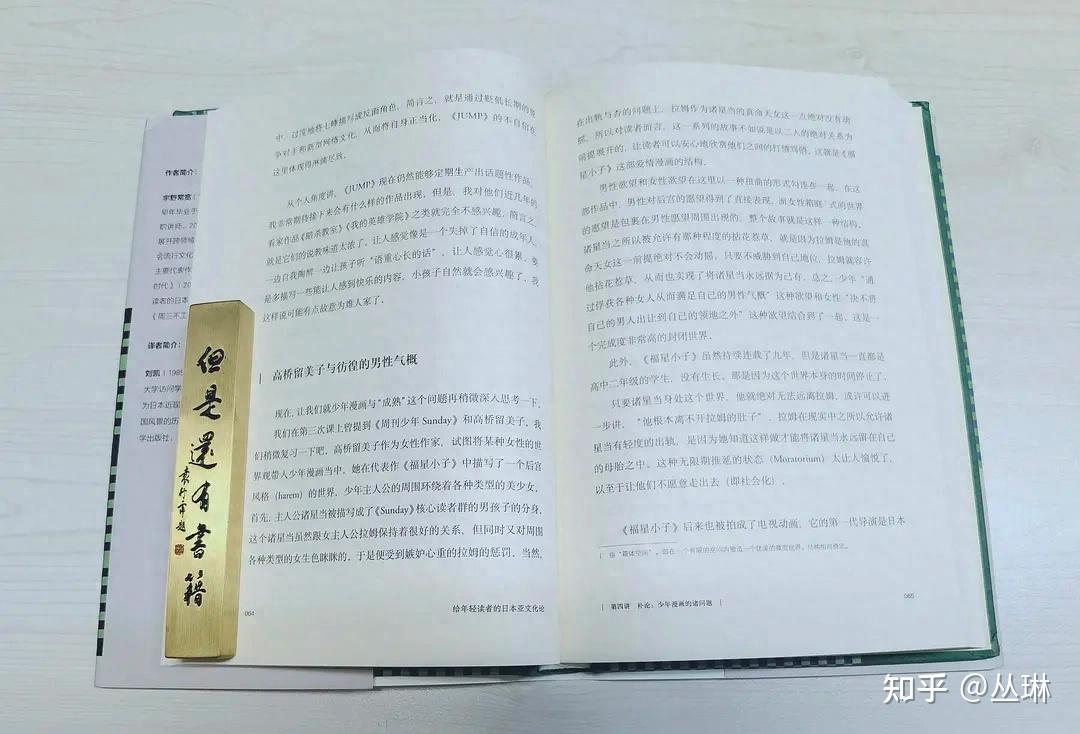 作者简介：
宇野常宽（
早年毕业于
职讲师。20
展开跨领域
会流行文化
主要代表作
时代》（20
读者的日本
《周三不工
译者简介：
刘凯（198
大学访问学
为日本近程
国风景的历
学出版社，
但是还有書籍
中，过度地将七峰描写成反面角色，简言之，就是通过贬低长期的竞
争对手和新型网络文化，从而将自身正当化，《JUMP》的不自信在
这里体现得淋漓尽致。
从个人角度讲，《JUMP》现在仍然能够定期生产出话题性作品，
我非常期待接下来会有什么样的作品出现，但是，我对他们近几年的
看家作品《暗杀教室》《我的英雄学院》之类就完全不感兴趣，简言之，
就是它们的说教味道太浓了，让人感觉像是一个失掉了自信的成年人，
一边自我陶醉一边让孩子听“语重心长的话”，让人感觉心很累，要
是多描写一些能让人感到快乐的内容，小孩子自然就会感兴趣了，我
这样说可能有点故意为难人家了。
高桥留美子与彷徨的男性气概
现在，让我们就少年漫画与“成熟”这个问题再稍微深入思考一下。
我们在第三次课上曾提到《周刊少年 Sunday》和高桥留美子，我
们稍微复习一下吧。高桥留美子作为女性作家，试图将某种女性的世
界观带入少年漫画当中，她在代表作《福星小子》中描写了一个后宫
风格（harem）的世界，少年主人公的周围环绕着各种类型的美少女，
首先，主人公诸星当被描写成了《Sunday》核心读者群的男孩子的分身，
这个诸星当虽然跟女主人公拉姆保持着很好的关系，但同时又对周围
各种类型的女生色眯眯的，于是便受到嫉妒心重的拉姆的惩罚，当然，
064
给年轻读者的日本亚文化论
在出轨与否的问题上，拉姆作为诸星当的真命天女这一点绝对没有动
摇，所以对读者而言，这一系列的故事不如说是以二人的绝对关系为
前提展开的，让读者可以安心地欣赏他们之间的打情骂俏，这就是《福
星小子》这部爱情漫画的结构。
男性欲望和女性欲望在这里以一种扭曲的形式勾连在一起，在这
部作品中，男性对后宫的愿望得到了直接表现，而女性箱庭¹式的世界
的愿望是包裹在男性愿望周围出现的，整个故事就是这样一种结构。
诸星当之所以被允许有那种程度的拈花惹草，就是因为拉姆是他的真
命天女这一前提绝对不会动摇，只要不威胁到自己地位，拉姆就容许
他拈花惹草，从而也实现了将诸星当永远据为己有，总之，少年“通
过俘获各种女人从而满足自己的男性气概”这种欲望和女性“决不将
自己的男人出让到自己的领地之外”这种欲望结合到了一起，这是一
个完成度非常高的封闭世界。
此外，《福星小子》虽然持续连载了九年，但是诸星当一直都是
高中二年级的学生，没有生长。那是因为这个世界本身的时间停止了，
只要诸星当身处这个世界，他就绝对无法远离拉姆，或许可以进
一步讲，“他根本离不开拉姆的肚子”，拉姆在现实中之所以允许诸
星当有轻度的出轨，是因为她知道这样做才能将诸星当永远留在自己
的母胎之中。这种无限期推延的状态（Moratorium）太让人愉悦了，
以至于让他们不愿意走出去（即社会化）。
《福星小子》后来也被拍成了电视动画，它的第一代导演是日本
第四讲 补论：少年漫画的诸问题
065
知乎 @丛琳